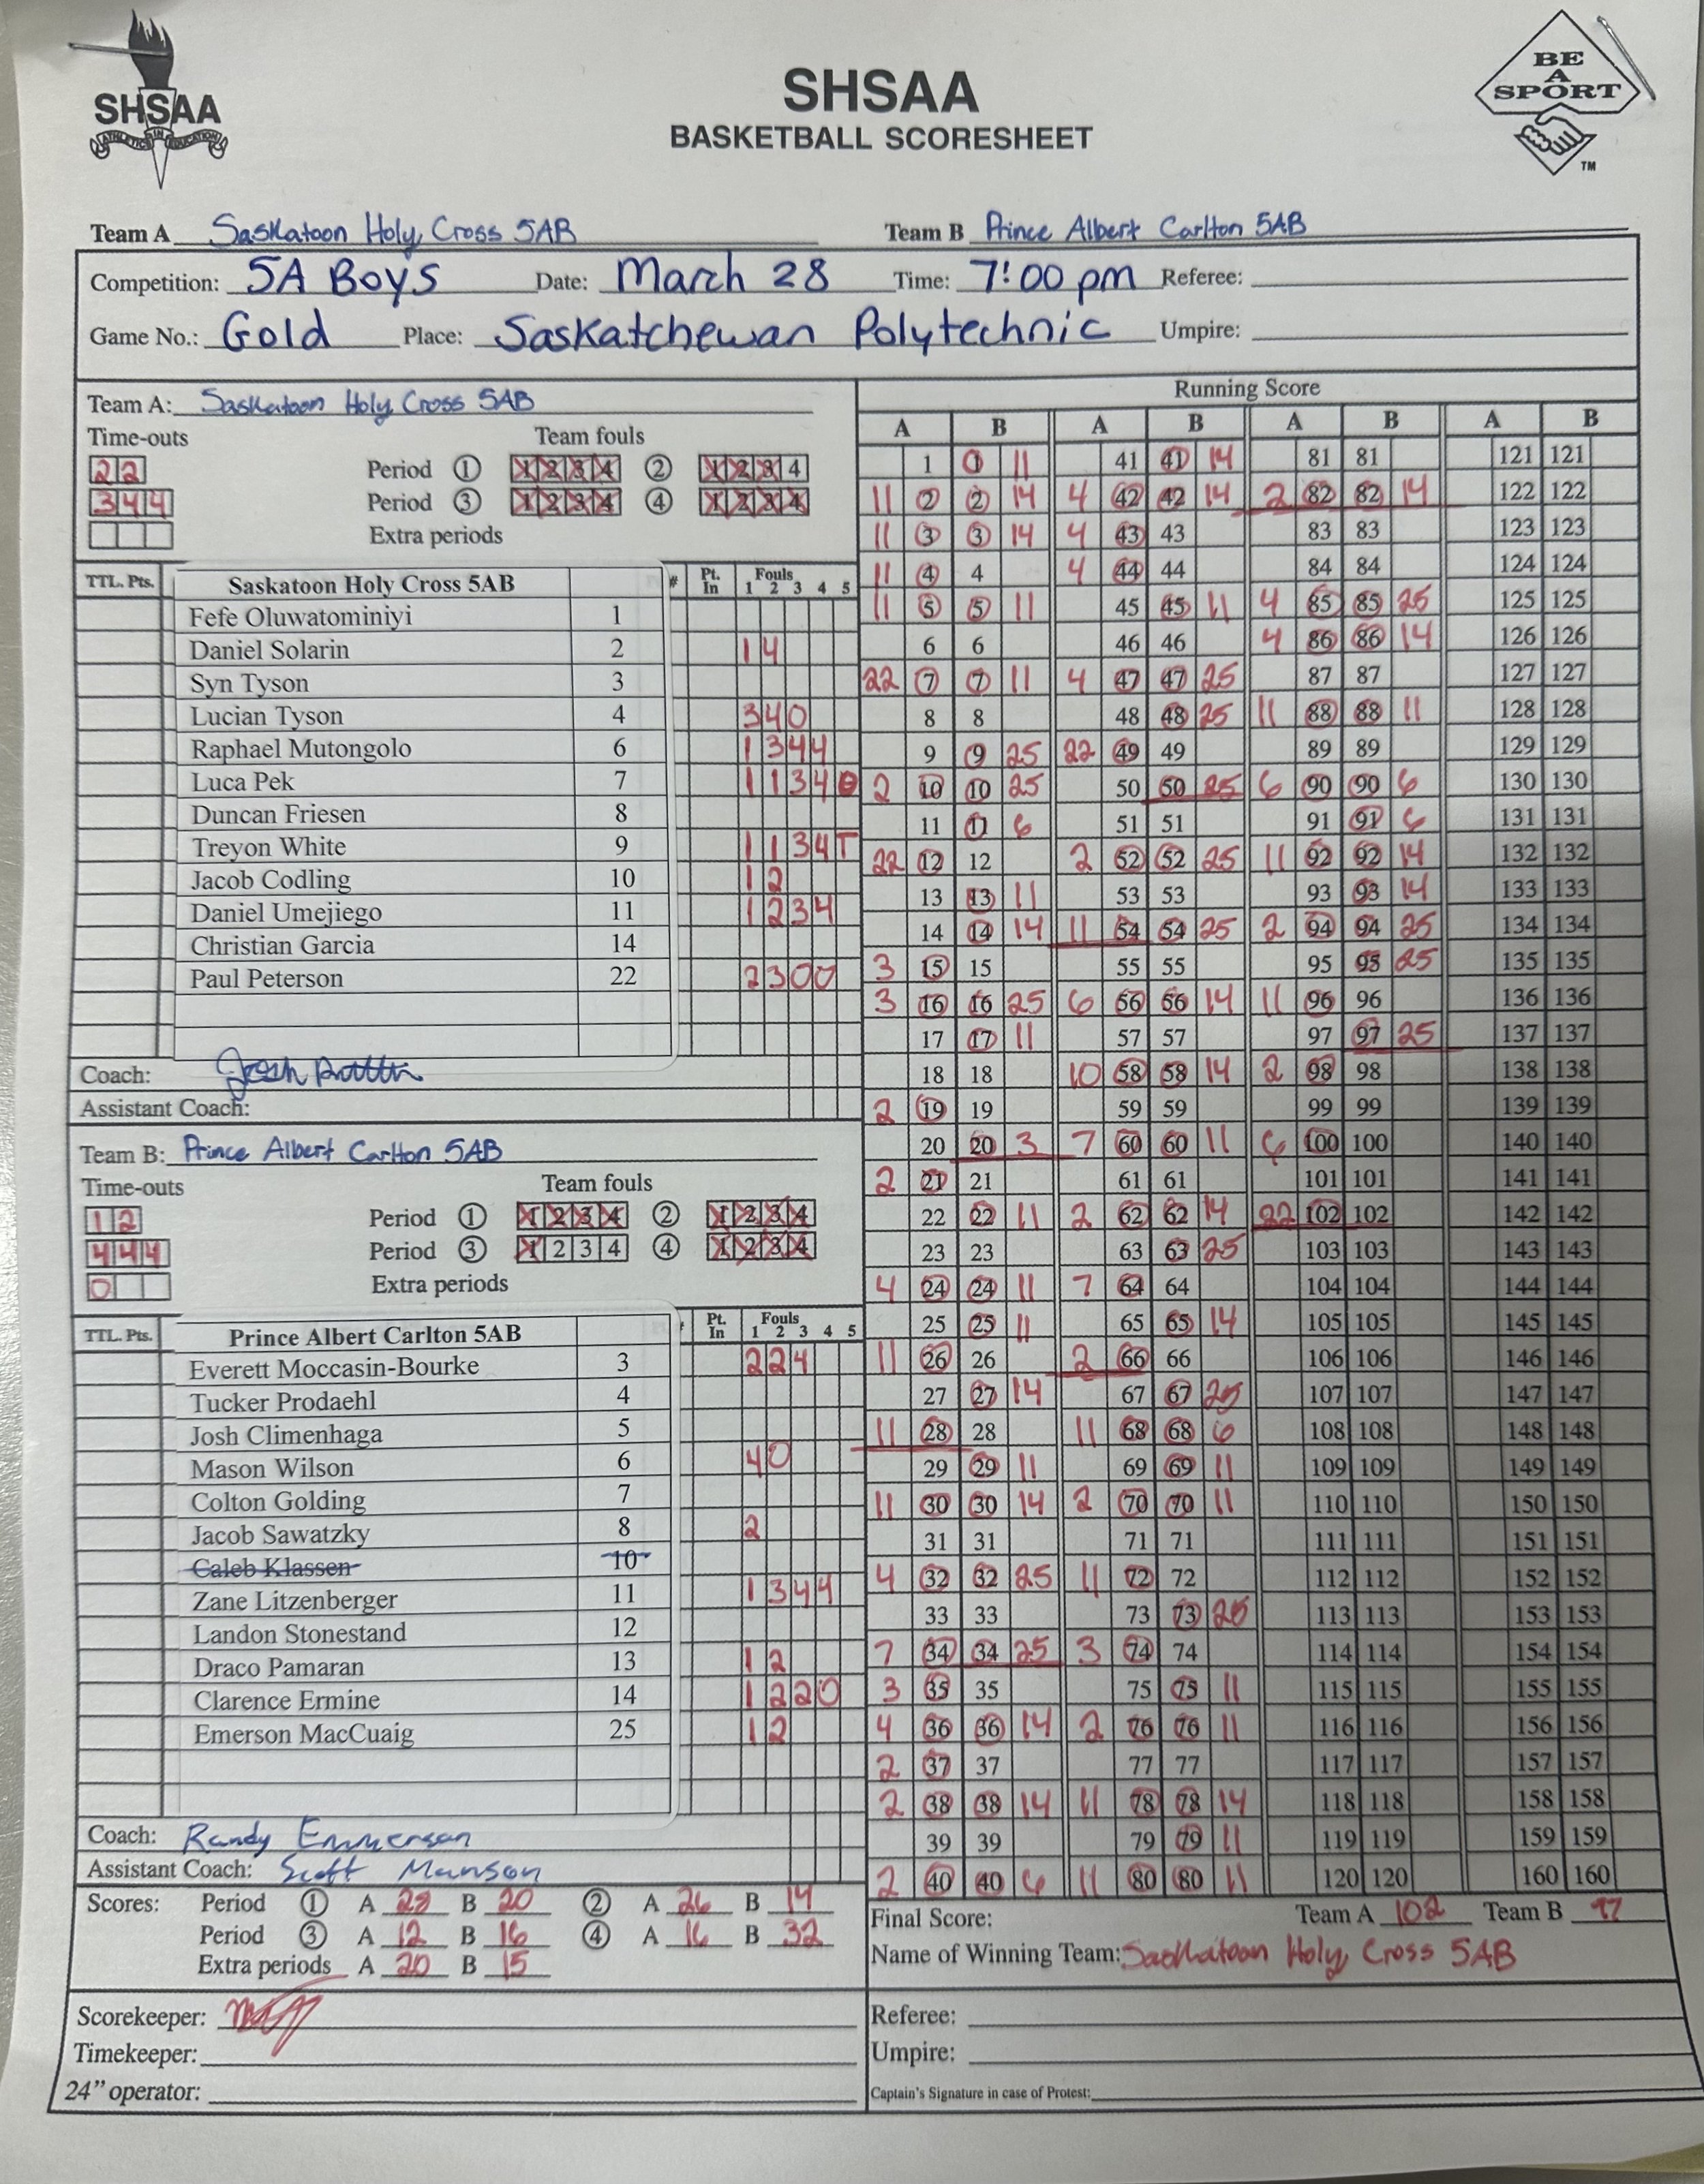 SHSAA
ATHLETICS IN EDUCATION
SHSAA
BASKETBALL SCORESHEET
BE
A
SPORT
TM
Team A Saskatoon Holy Cross 5AB Team B Prince Albert Carlton 5AB
Competition: 5A Boys Date: March 28 Time: 7:00 pm Referee:
Game No.: Gold Place: Saskatchewan Polytechnic Umpire:
Team A: Saskatoon Holy Cross 5AB
Time-outs Team fouls
2 2 Period 1 1 2 3 4 2 1 2 3 4
3 4 4 Period 3 1 2 3 4 4 1 2 3 4
Extra periods
TTL. Pts. Saskatoon Holy Cross 5AB # Pt. In Fouls 1 2 3 4 5
Fefe Oluwatominiyi 1
Daniel Solarin 2 1 4
Syn Tyson 3
Lucian Tyson 4 3 4 0
Raphael Mutongolo 6 1 3 4 4
Luca Pek 7 1 1 3 4 0
Duncan Friesen 8
Treyon White 9 1 1 3 4 T
Jacob Codling 10 1 2
Daniel Umejiego 11 1 2 3 4
Christian Garcia 14
Paul Peterson 22 2 3 0 0
Coach:
Assistant Coach:
Team B: Prince Albert Carlton 5AB
Time-outs Team fouls
1 2 Period 1 1 2 3 4 2 1 2 3 4
4 4 4 Period 3 1 2 3 4 4 1 2 3 4
0 Extra periods
TTL. Pts. Prince Albert Carlton 5AB Pt. In Fouls 1 2 3 4 5
Everett Moccasin-Bourke 3 2 2 4
Tucker Prodaehl 4
Josh Climenhaga 5
Mason Wilson 6 4 0
Colton Golding 7
Jacob Sawatzky 8 2
Caleb Klassen 10
Zane Litzenberger 11 1 3 4 4
Landon Stonestand 12
Draco Pamaran 13 1 2
Clarence Ermine 14 1 2 2 0
Emerson MacCuaig 25 1 2
Coach: Randy Emmerson
Assistant Coach: Scott Manson
Scores: Period 1 A 28 B 20 2 A 26 B 14
Period 3 A 12 B 16 4 A 16 B 32
Extra periods A 20 B 15
Scorekeeper:
Timekeeper:
24" operator:
Running Score
A B A B A B A B
1 1 11 41 41 14 81 81 121 121
11 2 2 14 4 42 42 14 2 82 82 14 122 122
11 3 3 14 4 43 43 83 83 123 123
11 4 4 4 44 44 84 84 124 124
11 5 5 11 45 45 11 4 85 85 25 125 125
6 6 46 46 4 86 86 14 126 126
22 7 7 11 4 47 47 25 87 87 127 127
8 8 48 48 25 11 88 88 11 128 128
9 9 25 22 49 49 89 89 129 129
2 10 10 25 50 50 25 6 90 90 6 130 130
11 11 6 51 51 91 91 6 131 131
22 12 12 2 52 52 25 11 92 92 14 132 132
13 13 11 53 53 93 93 14 133 133
14 14 14 11 54 54 25 2 94 94 25 134 134
3 15 15 55 55 95 95 25 135 135
3 16 16 25 6 56 56 14 11 96 96 136 136
17 17 11 57 57 97 97 25 137 137
18 18 10 58 58 14 2 98 98 138 138
2 19 19 59 59 99 99 139 139
20 20 3 7 60 60 11 6 100 100 140 140
2 21 21 61 61 101 101 141 141
22 22 11 2 62 62 14 22 102 102 142 142
23 23 63 63 25 103 103 143 143
4 24 24 11 7 64 64 104 104 144 144
25 25 11 65 65 14 105 105 145 145
11 26 26 2 66 66 106 106 146 146
27 27 14 67 67 25 107 107 147 147
11 28 28 11 68 68 6 108 108 148 148
29 29 11 69 69 11 109 109 149 149
11 30 30 14 2 70 70 11 110 110 150 150
31 31 71 71 111 111 151 151
4 32 32 25 11 72 72 112 112 152 152
33 33 73 73 25 113 113 153 153
7 34 34 25 3 74 74 114 114 154 154
3 35 35 75 75 11 115 115 155 155
4 36 36 14 2 76 76 11 116 116 156 156
2 37 37 77 77 117 117 157 157
2 38 38 14 11 78 78 14 118 118 158 158
39 39 79 79 11 119 119 159 159
2 40 40 6 11 80 80 11 120 120 160 160
Final Score: Team A 102 Team B 97
Name of Winning Team: Saskatoon Holy Cross 5AB
Referee:
Umpire:
Captain's Signature in case of Protest: